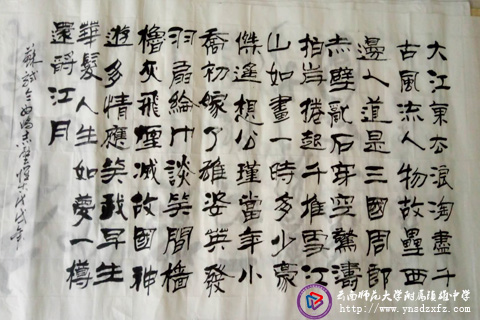 大江東去浪淘盡千
古風流人物故壘西
邊人道是三國周郎
赤壁亂石穿空驚濤
拍岸捲起千堆雪江
山如畫一時多少豪
傑遙想公瑾當年小
喬初嫁了雄姿英發
羽扇綸巾談笑間檣
櫓灰飛煙滅故國神
遊多情應笑我早生
華髮人生如夢一樽
還酹江月
蘇軾念奴嬌赤壁懷古戊戌年
云南师范大学附属镇雄中学
www.ynsdzxfz.com